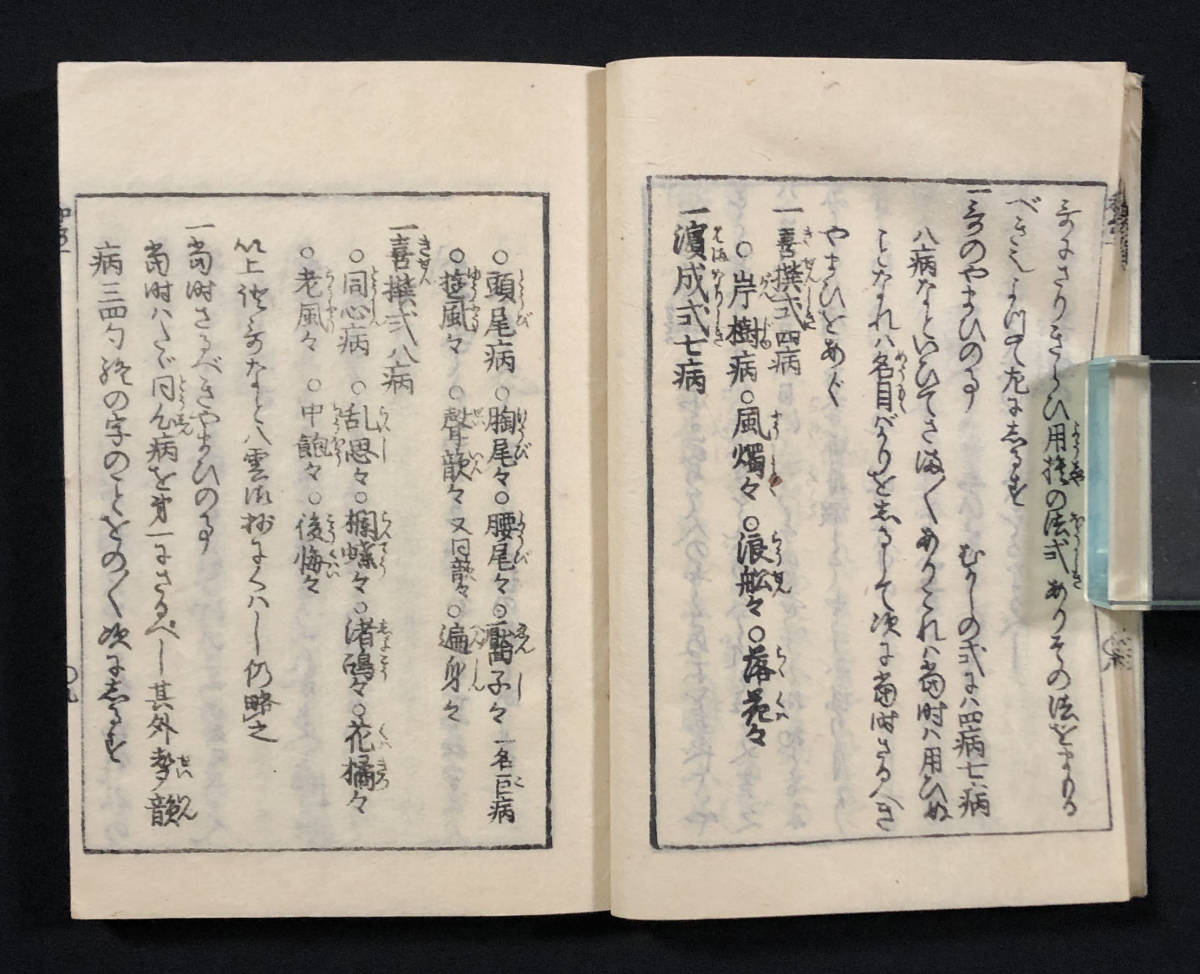 哥にさりきらひ用捨の法式ありその法をまもる
べき也よつて左にしるす
一哥のやまひの事 むかしの式に八四病七病
八病なといひてさま〳〵ありこれハ當時ハ用ひぬ
ことなれハ名目ばかりをしるして次に當時さるへき
やまひをあぐ
一喜撰式四病
○岸樹病○風燭々○浪舩々○落花々
一濱成式七病
○頭尾病○胸尾々○腰尾々○黶子々 一名巨病
○遊風々○聲韻々 又同韻々○遍身々
一喜撰式八病
○同心病○乱思々○欄蝶々○渚鴻々○花橘々
○老風々○中飽々○後悔々
以上詳哥なと八雲御抄にくハし仍略之
一當時さるべきやまひの事
當時ハたゞ同心病を第一にさるべし其外聲韻
病三四句終の字のことをの〳〵次にしるす